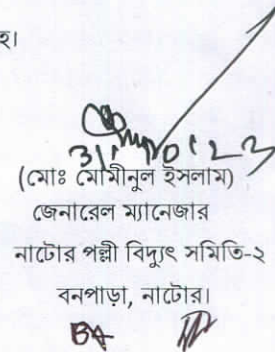 হ।
31.10.23
(মোঃ মোমীনুল ইসলাম)
জেনারেল ম্যানেজার
নাটোর পল্লী বিদ্যুৎ সমিতি-২
বনপাড়া, নাটোর।